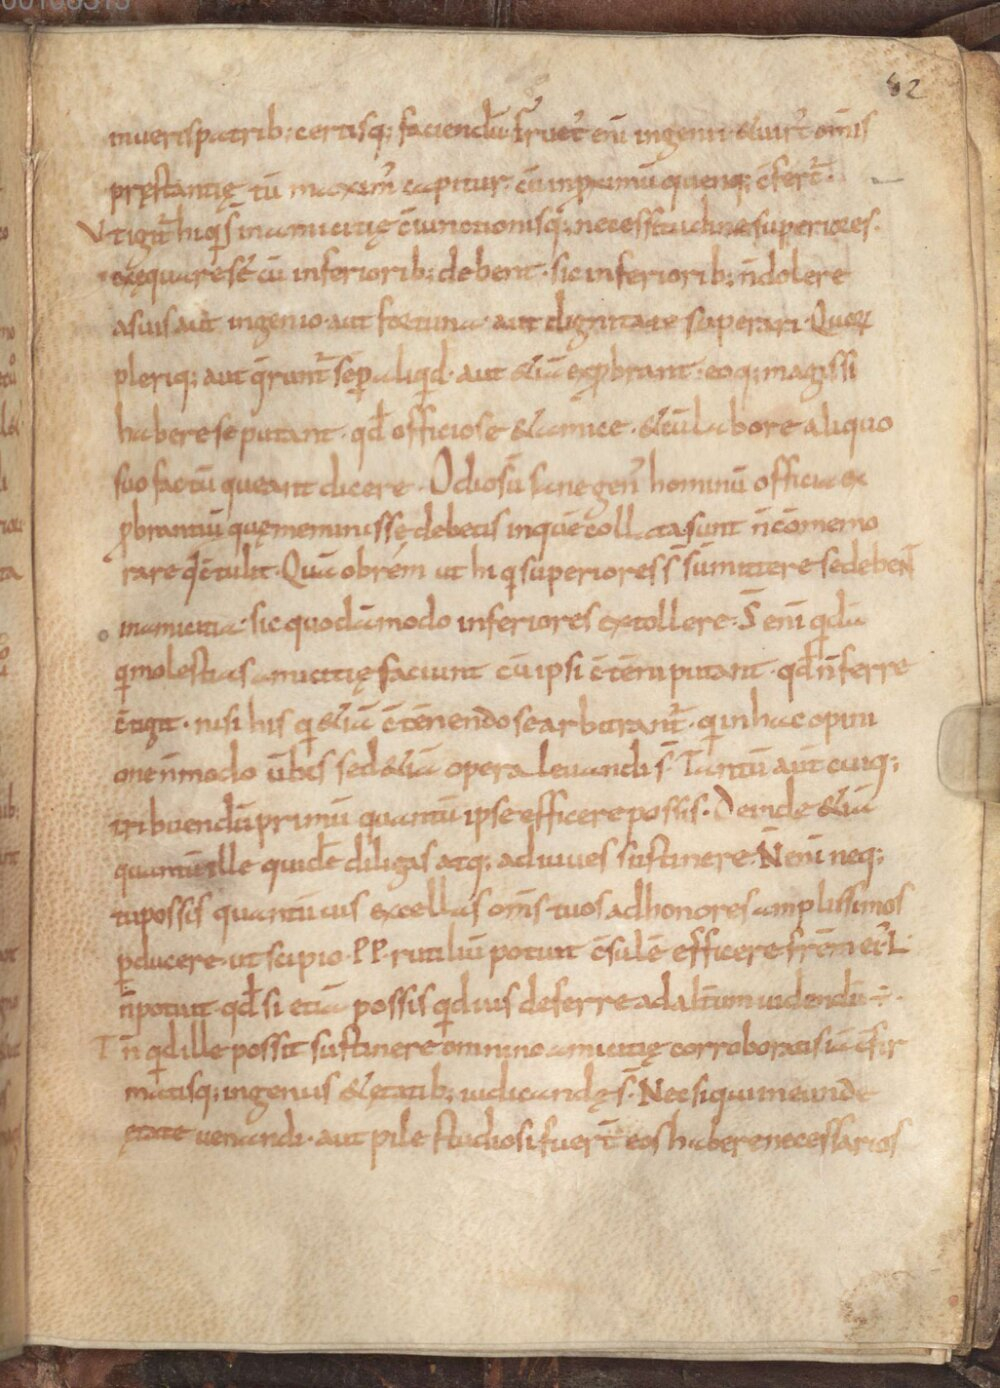 82
inuerispatrib; certisq; faciendū. Fruct᾽ enī ingenii & uirt᾽ om̄is
pręstantię tū maxim᾽ capitur. cū inproximū quenq; c̄fert᾽.
Vtigit᾽ hi qis inamicitię c̄iunctionisq; necessitudine superiores.
exęquare se cū inferiorib; debent. sic inferiorib; n̄ dolere
asuis aut ingenio. aut fortuna. aut dignitate superari. Quoꝝ
pleriq; aut q̄runt᾽ sēp aliqd̄. aut &iā exprobrant. eoq; magis si
habere se putant. qd̄ officiose & amice. & cū labore aliquo
suo factū queant dicere. Odiosū sane gen᾽ hominū officia ex
probrantiū quę meminisse debet is inquē collata sunt n̄ cōmemo
rare q̄ c̄tulit. Quā obrē̄m ut hi q superiores s̄ sūmittere se debent
inamicitia. sic quodāmodo inferiores extollere. S̄ enī qdā
q molestias amicitię faciunt cū ipsi c̄tēni putant. qd̄ n̄ ferre
c̄tigit. nisi his q &iā c̄tēnendo se arbitrant᾽. q inhac opini
one n̄modo ūbis sed &iā opera leuandi s̄. Tantū aūt cuiq;
tribuendū primū quantū ipse efficere possis. Deinde &iā
quantū ille quidē diligas atq; adiuues sustinere. N̄ enī neq;
tu possis quantū uis excellas om̄is tuos adhonores amplissimos
pducere. ut scipio. PP. rutiliū potuit c̄sulē efficere frēm ei᾽ L.
n̄potuit. qd̄ si etiā possis qduis deferre adalt᾽um uidendū ÷.
T n̄ qd ille possit sustinere omnino amicitię corroboratis iā c̄fir
matisq; ingeniis & ętatib; iudicandę s̄. Nec siqui ineunde
ętate uenandi. aut pile studiosi fuer̄t eos habere necessarios